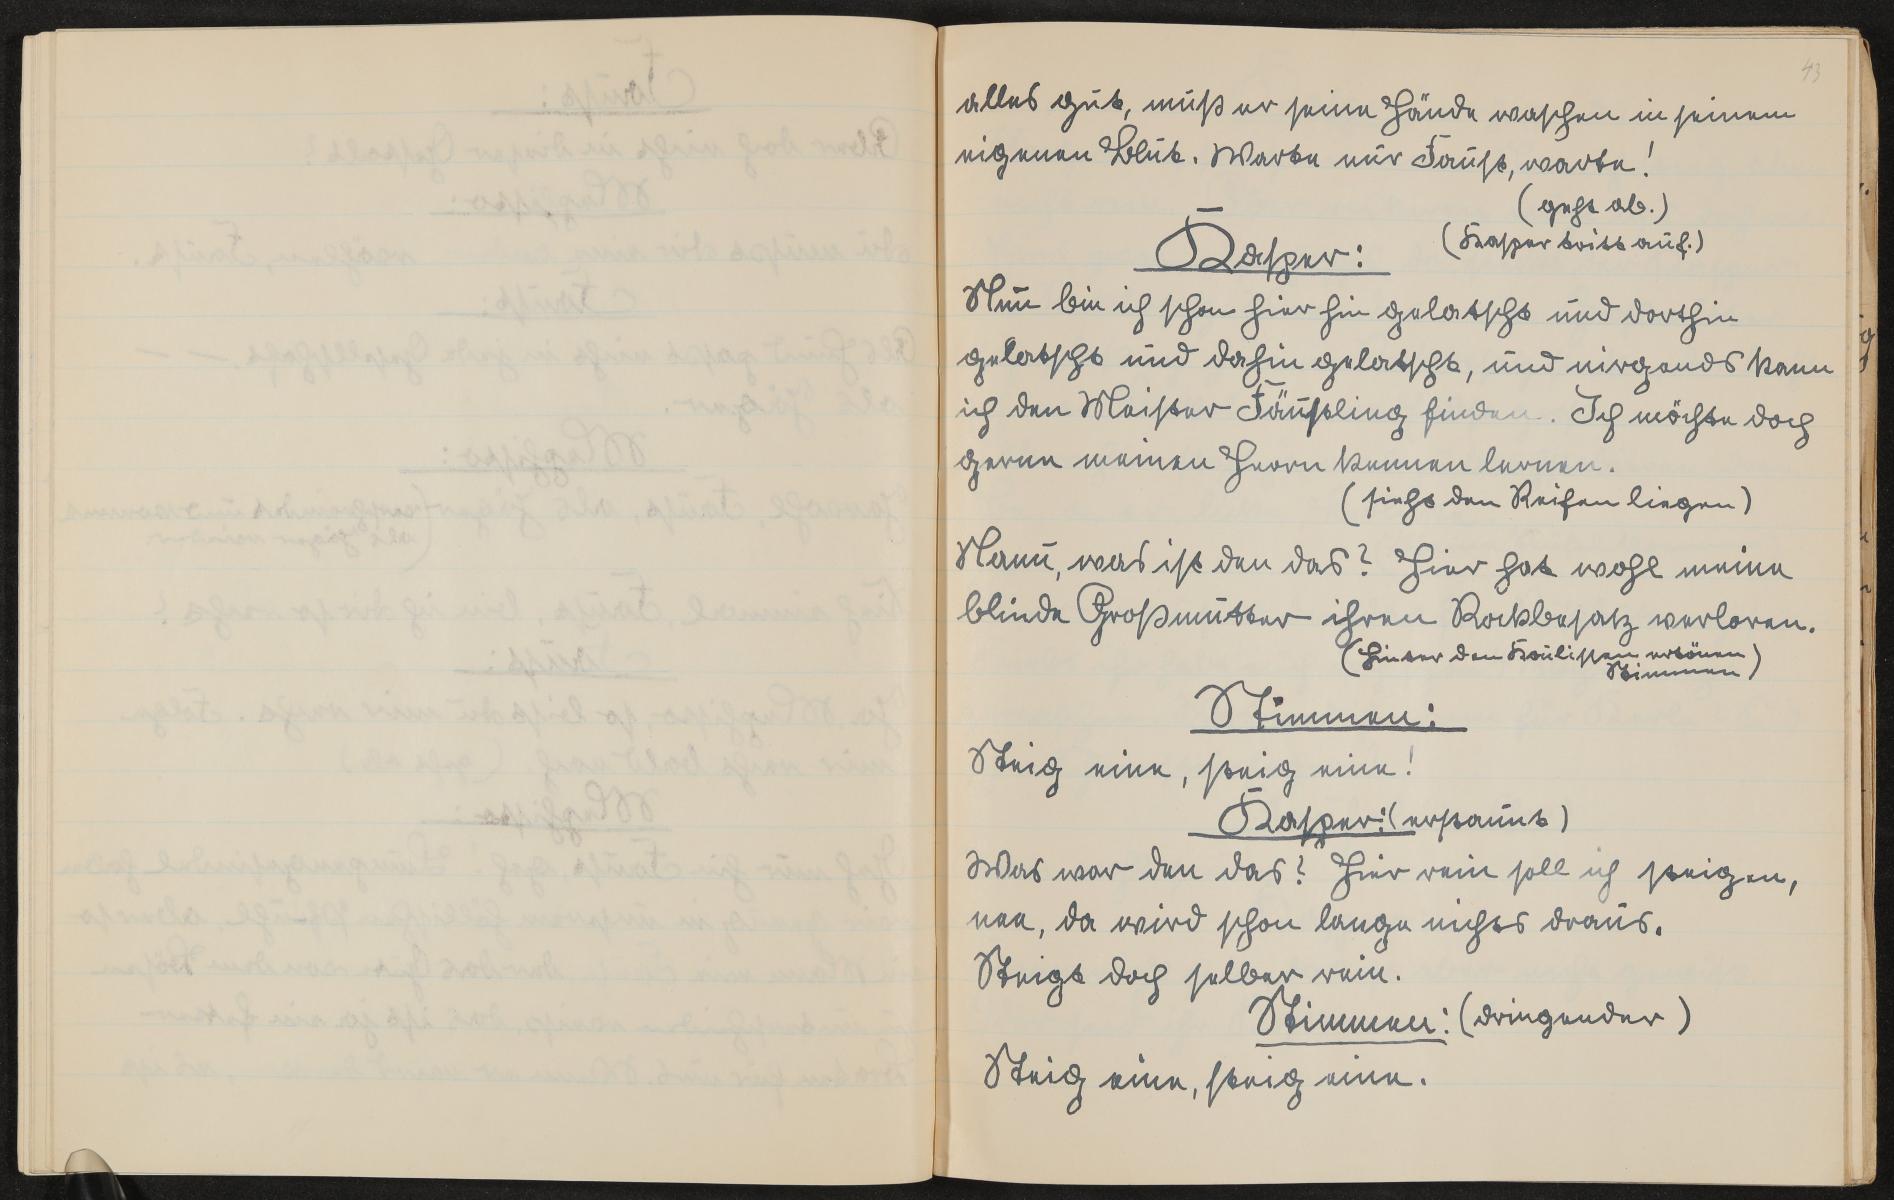 43
alles gut, muß er seine Hände waschen in seinem
eigenen Blut. Warte nur Faust, warte!
(geht ab.)
(Kasper tritt auf.)
Kasper:
Nun bin ich schon hier hin gelatscht und dorthin
gelatscht und dahin gelatscht, und nirgends kann
ich den Meister Fäustling finden. Ich möchte doch
gerne meinen Herrn kennen lernen.
(sieht den Reifen liegen)
Nanu, was ist den das? Hier hat wohl meine
blinde Großmutter ihren Rockbesatz verloren.
(Hinter den Kulissen ertönen
Stimmen)
Stimmen:
Steig eine, steig eine!
Kasper: (erstaunt)
Was war den das? Hier rein soll ich steigen,
nee, da wird schon lange nichts draus.
Steigt doch selber rein.
Stimmen: (dringender)
Steig eine, steig eine.